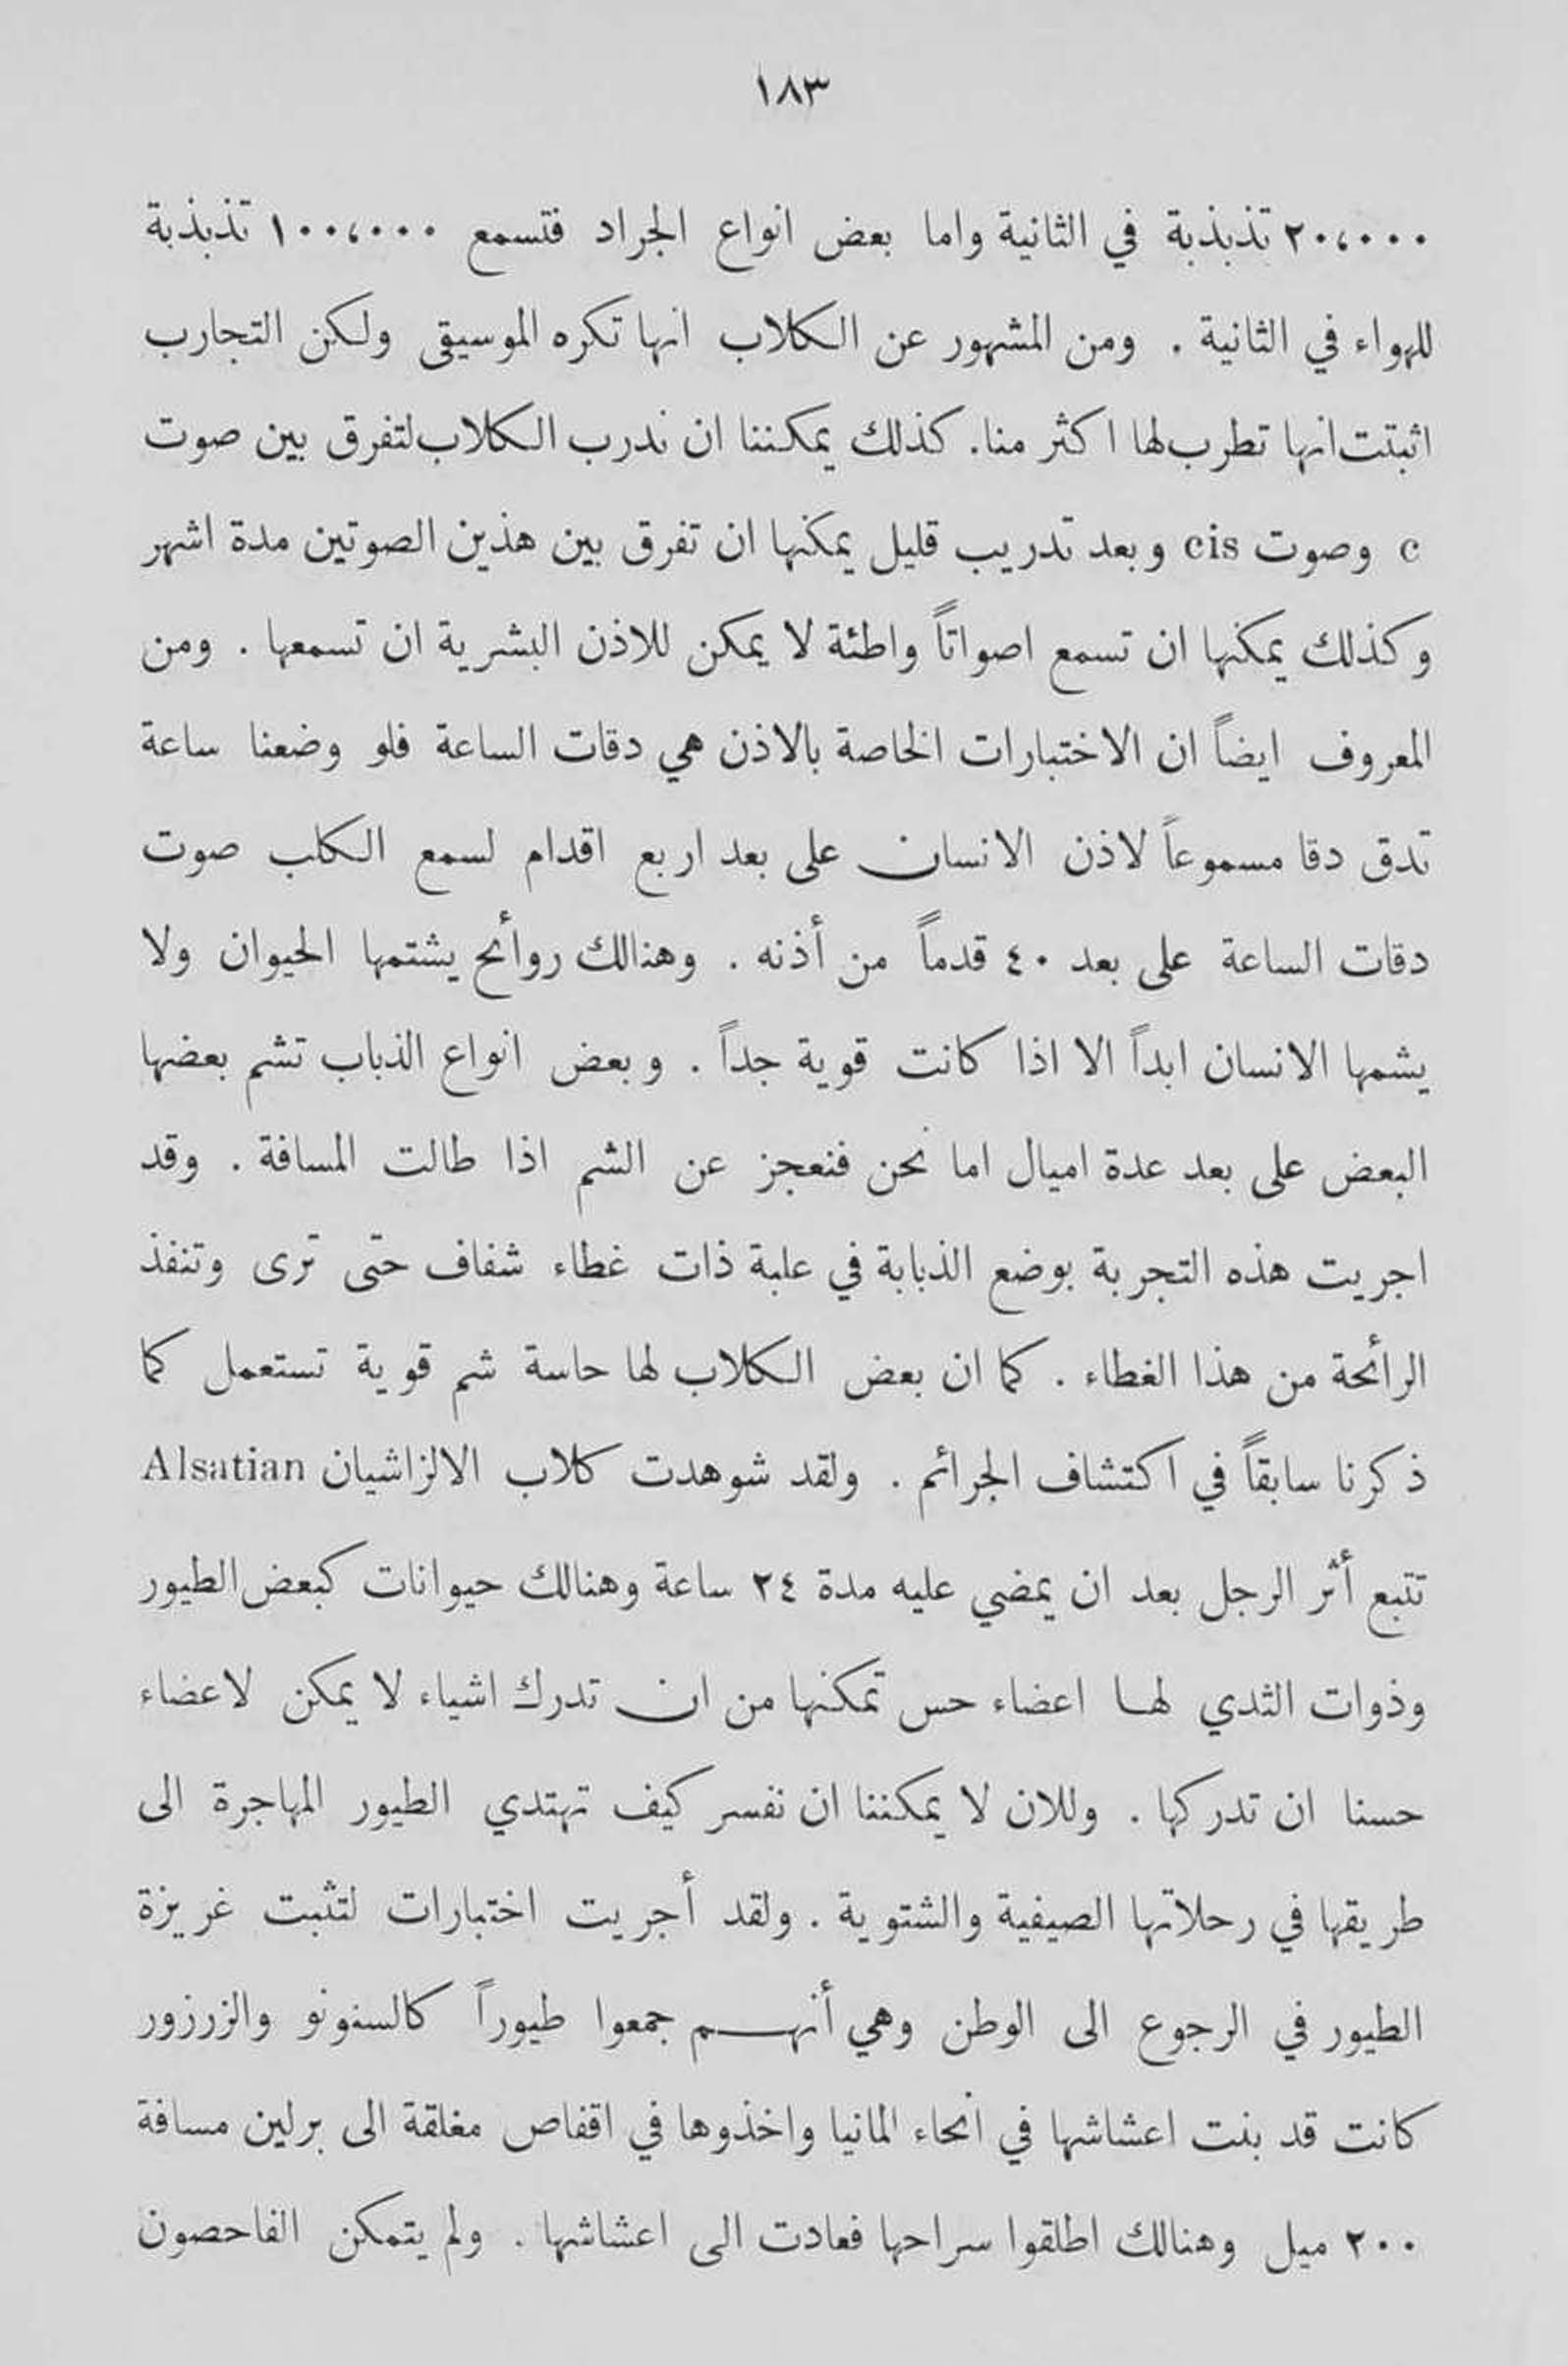 ١٨٣
٢٠،٠٠٠ تذبذبة في الثانية واما بعض انواع الجراد فتسمع ١٠٠،٠٠٠ تذبذبة
للهواء في الثانية . ومن المشهور عن الكلاب انها تكره الموسيقى ولكن التجارب
اثبتت انها تطرب لها اكثر منا. كذلك يمكننا ان ندرب الكلاب لتفرق بين صوت
c وصوت cis وبعد تدريب قليل يمكنها ان تفرق بين هذين الصوتين مدة اشهر
وكذلك يمكنها ان تسمع اصواتاً واطئة لا يمكن للاذن البشرية ان تسمعها . ومن
المعروف ايضاً ان الاختبارات الخاصة بالاذن هي دقات الساعة فلو وضعنا ساعة
تدق دقا مسموعاً لاذن الانسان على بعد اربع اقدام لسمع الكلب صوت
دقات الساعة على بعد ٤٠ قدماً من أذنه . وهنالك روأئح يشتمها الحيوان ولا
يشمها الانسان ابداً الا اذا كانت قوية جداً . وبعض انواع الذباب تشم بعضها
البعض على بعد عدة اميال اما نحن فنعجز عن الشم اذا طالت المسافة . وقد
اجريت هذه التجربة بوضع الذبابة في علبة ذات غطاء شفاف حتى ترى وتنفذ
الرأئحة من هذا الغطاء . كما ان بعض الكلاب لها حاسة شم قوية تستعمل كما
ذكرنا سابقاً في اكتشاف الجرائم . ولقد شوهدت كلاب الالزاشيان Alsatian
تتبع أثر الرجل بعد ان يمضي عليه مدة ٢٤ ساعة وهنالك حيوانات كبعض الطيور
وذوات الثدي لها اعضاء حس تمكنها من ان تدرك اشياء لا يمكن لاعضاء
حسنا ان تدركها . وللان لا يمكننا ان نفسر كيف تهتدي الطيور المهاجرة الى
طريقها في رحلاتها الصيفية والشتوية . ولقد أجريت اختبارات لتثبت غريزة
الطيور في الرجوع الى الوطن وهي أنهم جمعوا طيوراً كالسنونو والزرزور
كانت قد بنت اعشاشها في انحاء المانيا واخذوها في اقفاص مغلقة الى برلين مسافة
٢٠٠ ميل وهنالك اطلقوا سراحها فعادت الى اعشاشها . ولم يتمكن الفاحصون